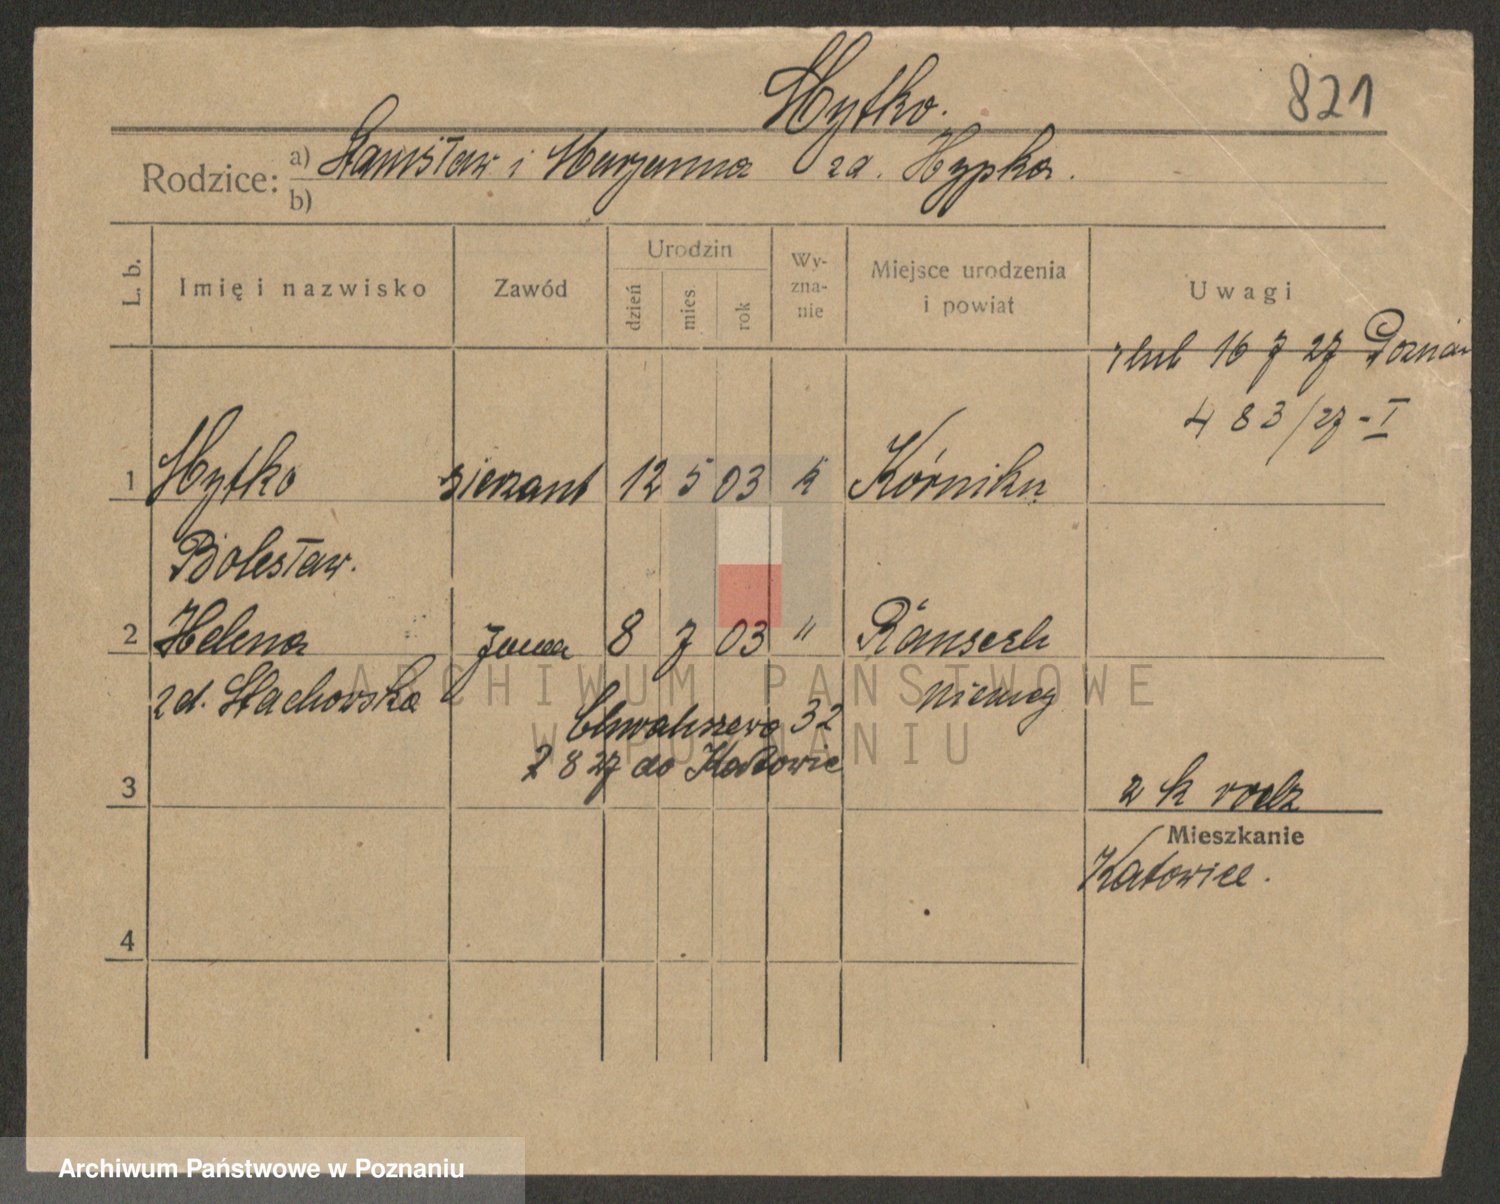 Hytko.
821
Rodzice: a) Stanisław i Marjanna zd. Hypka.
b)
L. b.
Imię i nazwisko
Zawód
Urodzin
dzień
mies.
rok
Wy-
zna-
nie
Miejsce urodzenia
i powiat
Uwagi
ślub 16 7 27 Poznań
483/27 - I
1 Hytko sierżant 12 5 03 k Kórniku
Bolesław.
2 Helena żona 8 7 03 "
zd. Stachowska Niemcy
Chwaliszewo 32
2 8 27 do Katowic
3
2 k rodz
Mieszkanie
Katowice.
4
ARCHIWUM PAŃSTWOWE
W POZNANIU
Archiwum Państwowe w Poznaniu